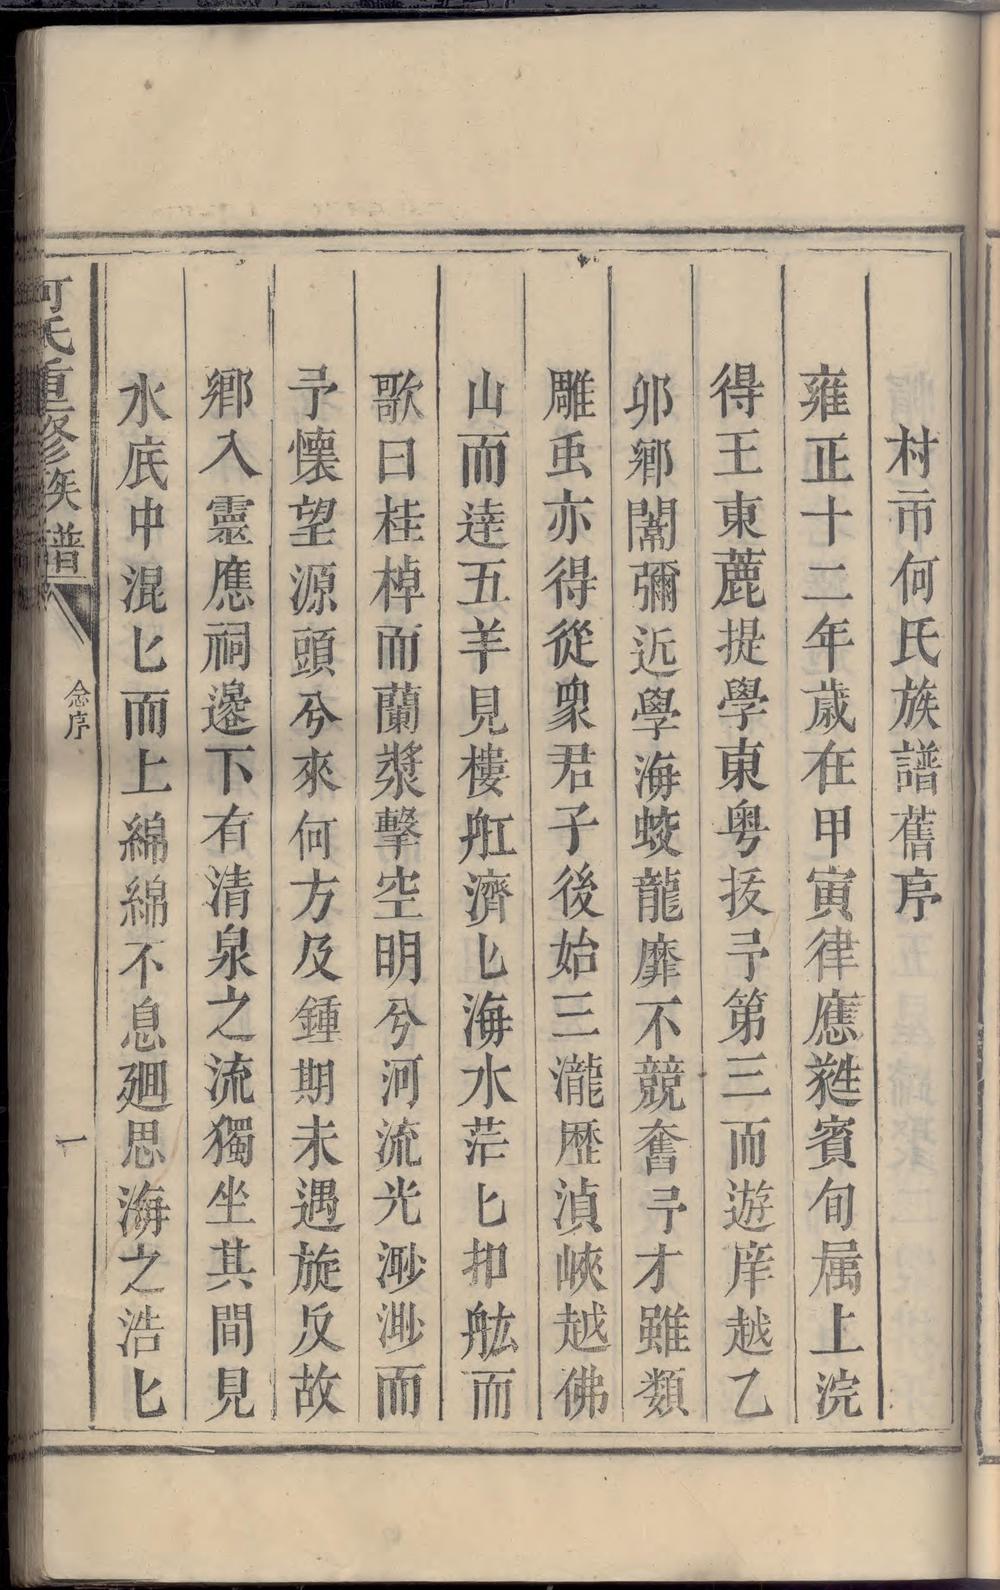 村市何氏族譜舊序
雍正十二年歲在甲寅律應蕤賓旬属上浣
得王東麓提學東粤拔予第三而遊庠越乙
卯鄉闈彌近學海蛟龍靡不競奮予才雖類
雕䖝亦得從衆君子後始三瀧歴滇峽越佛
山而逹五羊見樓舡濟匕海水茫匕扣舷而
歌曰桂棹而蘭槳擊空明兮河流光渺渺而
予懐望源頭兮來何方及鍾期未遇旋反故
鄉入靈應祠邊下有清泉之流獨坐其間見
水底中混匕而上綿綿不息廻思海之浩匕
何氏重修族譜
念序
一